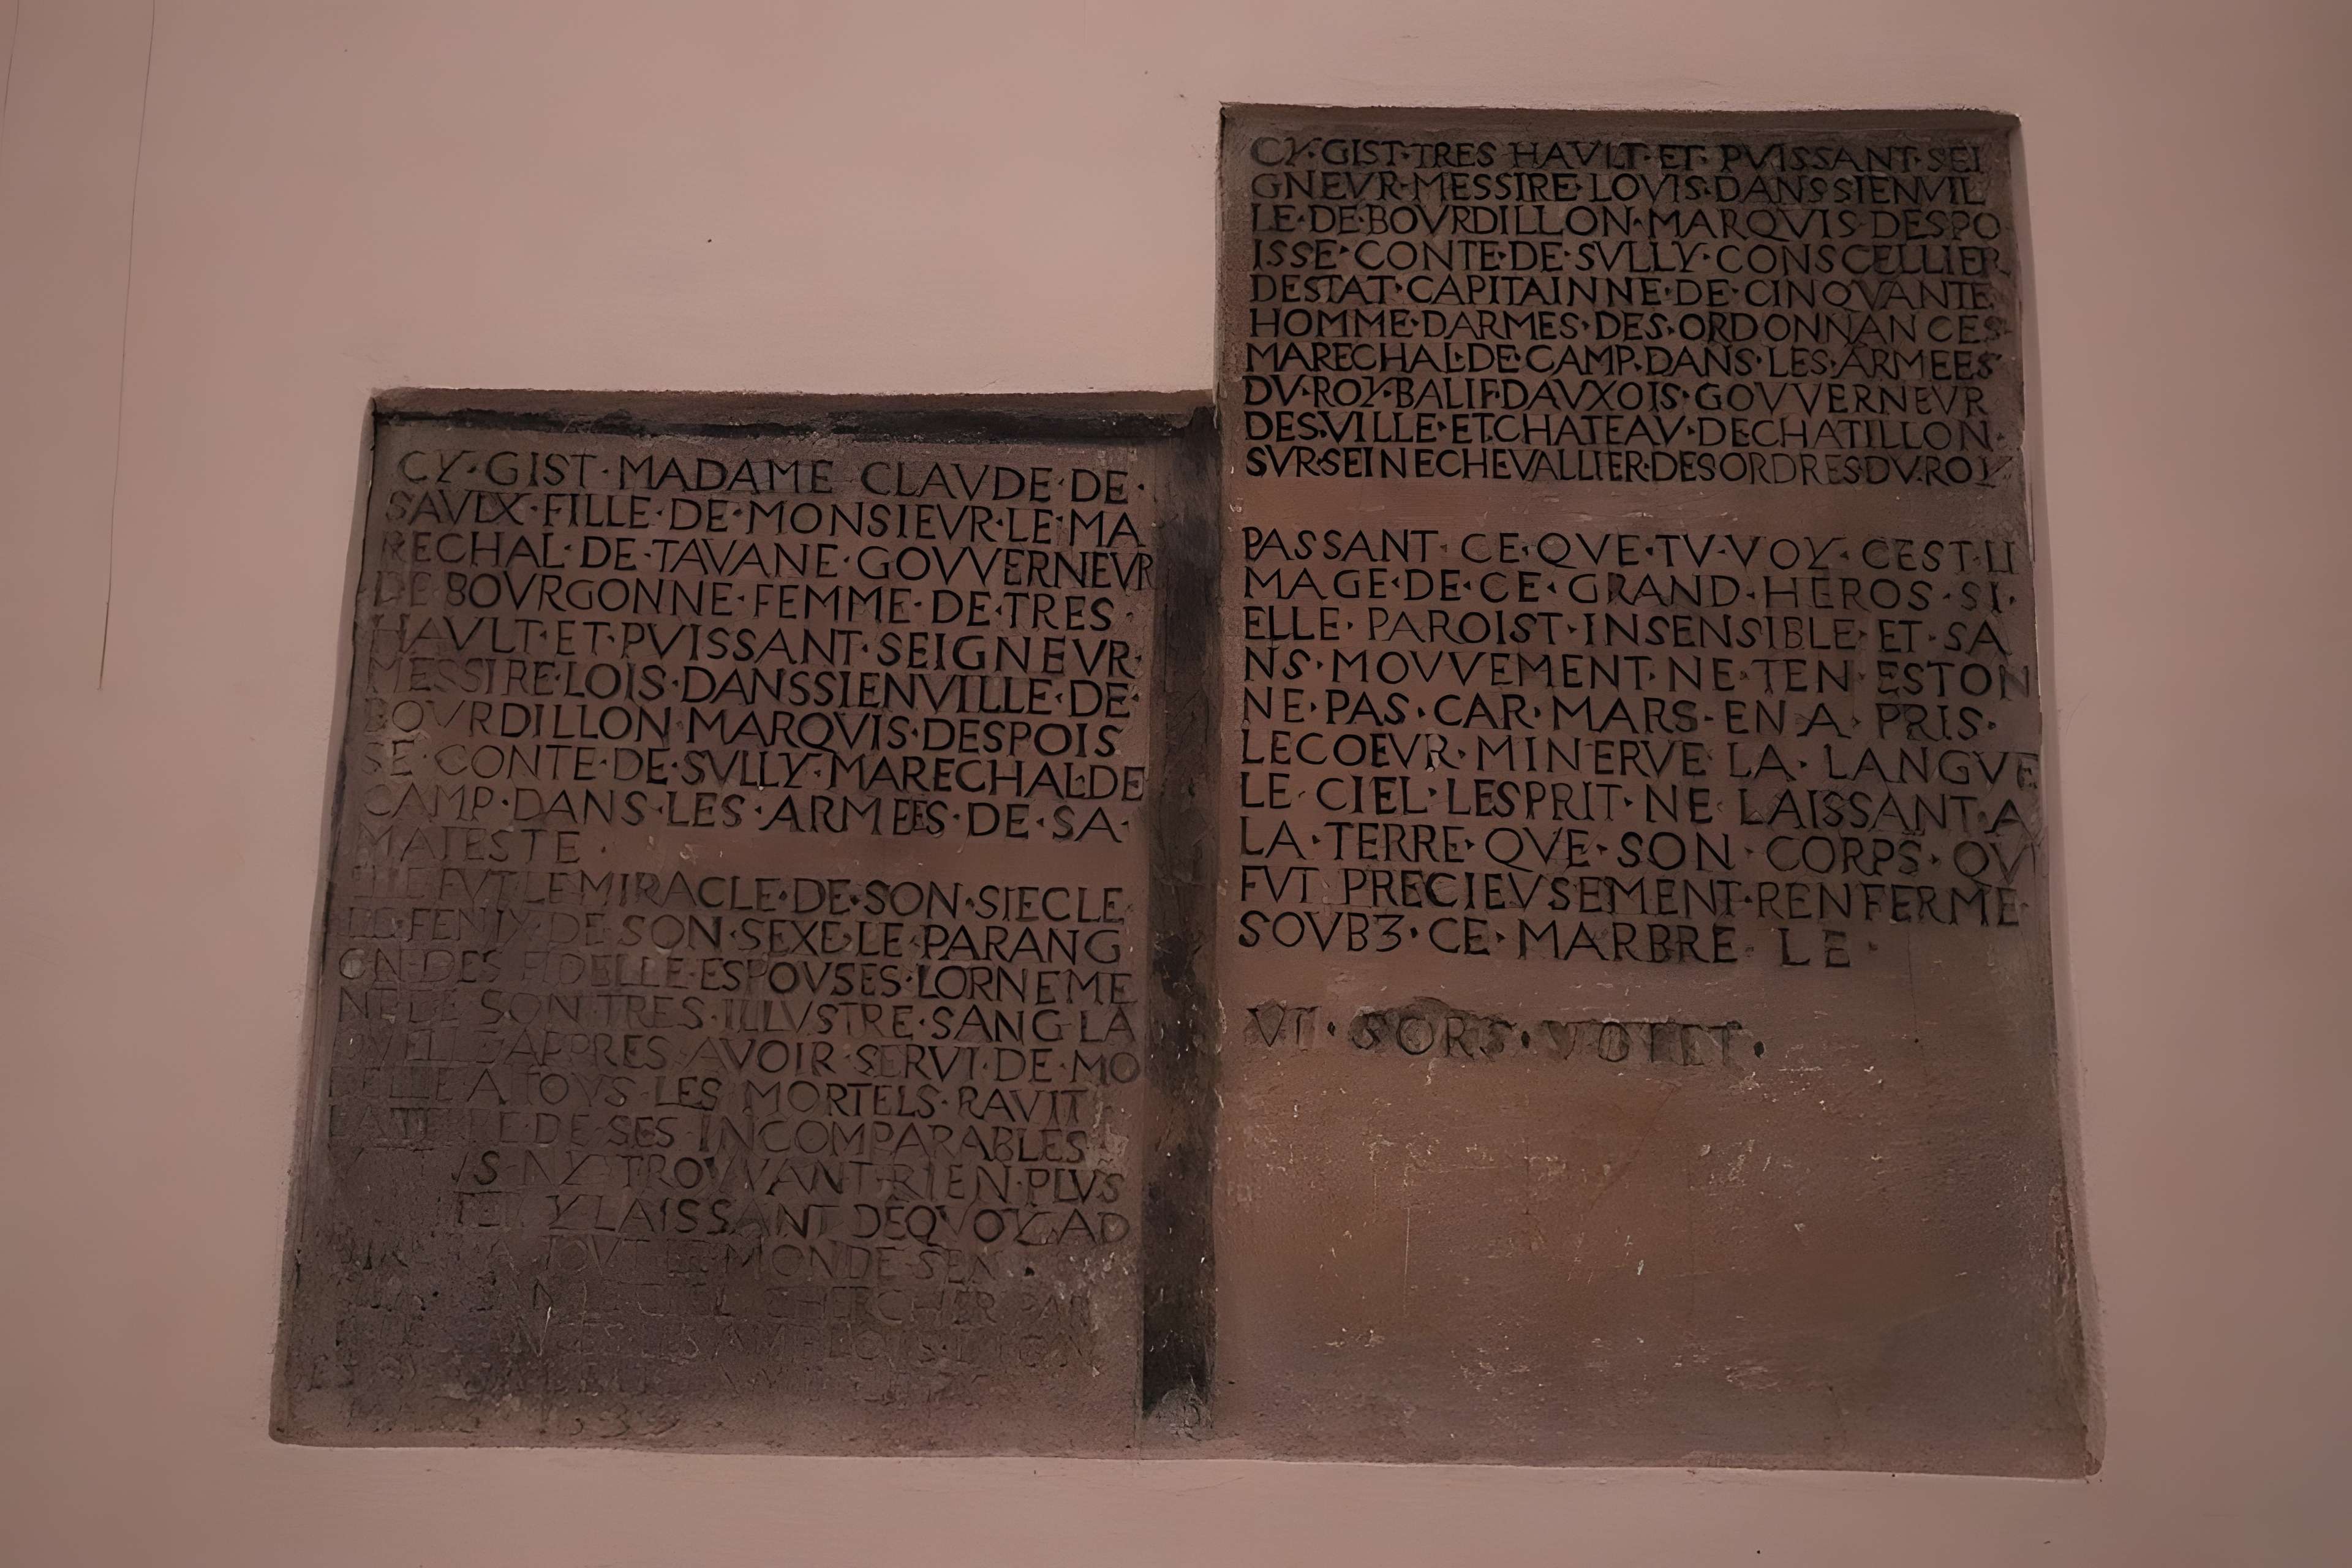 CY·GIST·MADAME CLAVDE·DE·
SAVLX·FILLE·DE·MONSIEVR·LE·MA
RECHAL·DE·TAVANE·GOVVERNEVR
DE·BOVRGONNE·FEMME·DE·TRES·
HAVLT·ET·PVISSANT·SEIGNEVR·
MESSIRE·LOIS·DANSSIENVILLE·DE·
BOVRDILLON·MARQVIS·DESPOIS
SE·CONTE·DE·SVLLY·MARECHAL·DE
CAMP·DANS·LES·ARMEES·DE·SA·
MAIESTE·
ELLE FVT·LE MIRACLE·DE·SON·SIECLE
LE·FENIX·DE·SON·SEXE·LE·PARANG
ON·DES FIDELLE·ESPOVSES·LORNEME
NT·DE SON·TRES·ILLVSTRE·SANG·LA
QVELLE·APPRES·AVOIR·SERVI·DE·MO
DELLE A TOVS·LES MORTELS·RAVIT
DE·SES·INCOMPARABLES
NY·TROVVANT·RIEN·PLVS
Y LAISSANT DEQVOY·AD
A TOVT LE MONDE·SEN·
CIEL CHERCHER PAR
CY·GIST·TRES HAVLT·ET·PVISSANT·SEI
GNEVR·MESSIRE·LOVIS·DANSSIENVIL
LE·DE·BOVRDILLON·MARQVIS·DESPO
ISSE·CONTE·DE·SVLLY·CONSCELLIER
DESTAT·CAPITAINNE·DE·CINQVANTE
HOMME·DARMES·DES·ORDONNANCES·
MARECHAL·DE·CAMP·DANS·LES·ARMEES
DV·ROY·BALIF·DAVXOIS·GOVVERNEVR
DES·VILLE·ET·CHATEAV·DECHATILLON·
SVR·SEINE CHEVALLIER·DES ORDRES·DV·ROY
PASSANT·CE·QVE·TV·VOY·CEST·LI
MAGE·DE·CE·GRAND·HEROS·SI·
ELLE·PAROIST·INSENSIBLE·ET·SA
NS·MOVVEMENT·NE·TEN·ESTON
NE·PAS·CAR·MARS·EN·A·PRIS·
LE COEVR·MINERVE·LA·LANGVE
LE·CIEL·LESPRIT·NE·LAISSANT·A
LA·TERRE·QVE·SON·CORPS·QVI
FVT·PRECIEVSEMENT·RENFERME·
SOVBZ·CE·MARBRE·LE·
VT·SORS·VOLET·